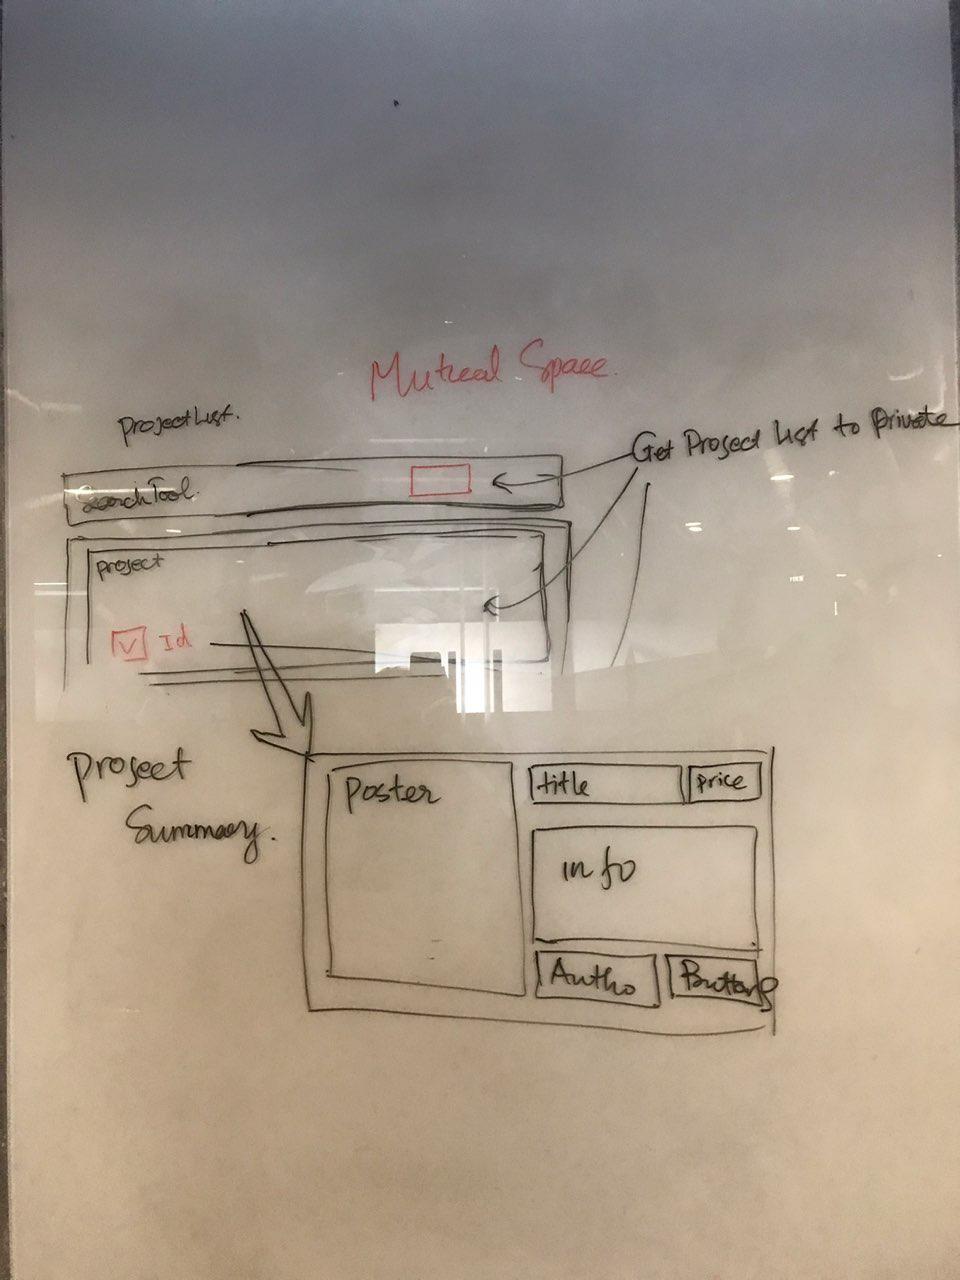 Mutual Space.
ProjectList.
Get Project List to private
SearchTool.
project
V Id
Project
Summary.
Poster
title
price
info
Autho
Buttons